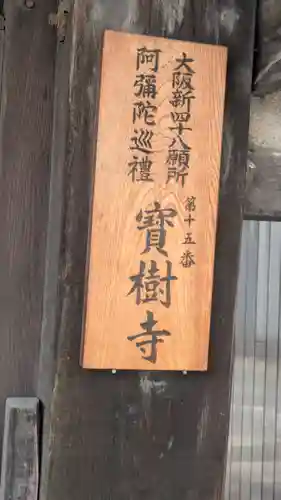 大阪新四十八願所
阿彌陀巡禮
第十五番
寶樹寺